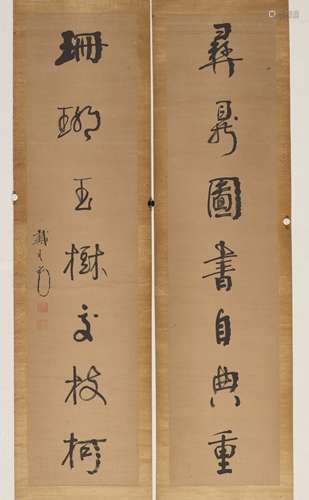 彝鼎圖書自典重
珊瑚玉樹交枝柯